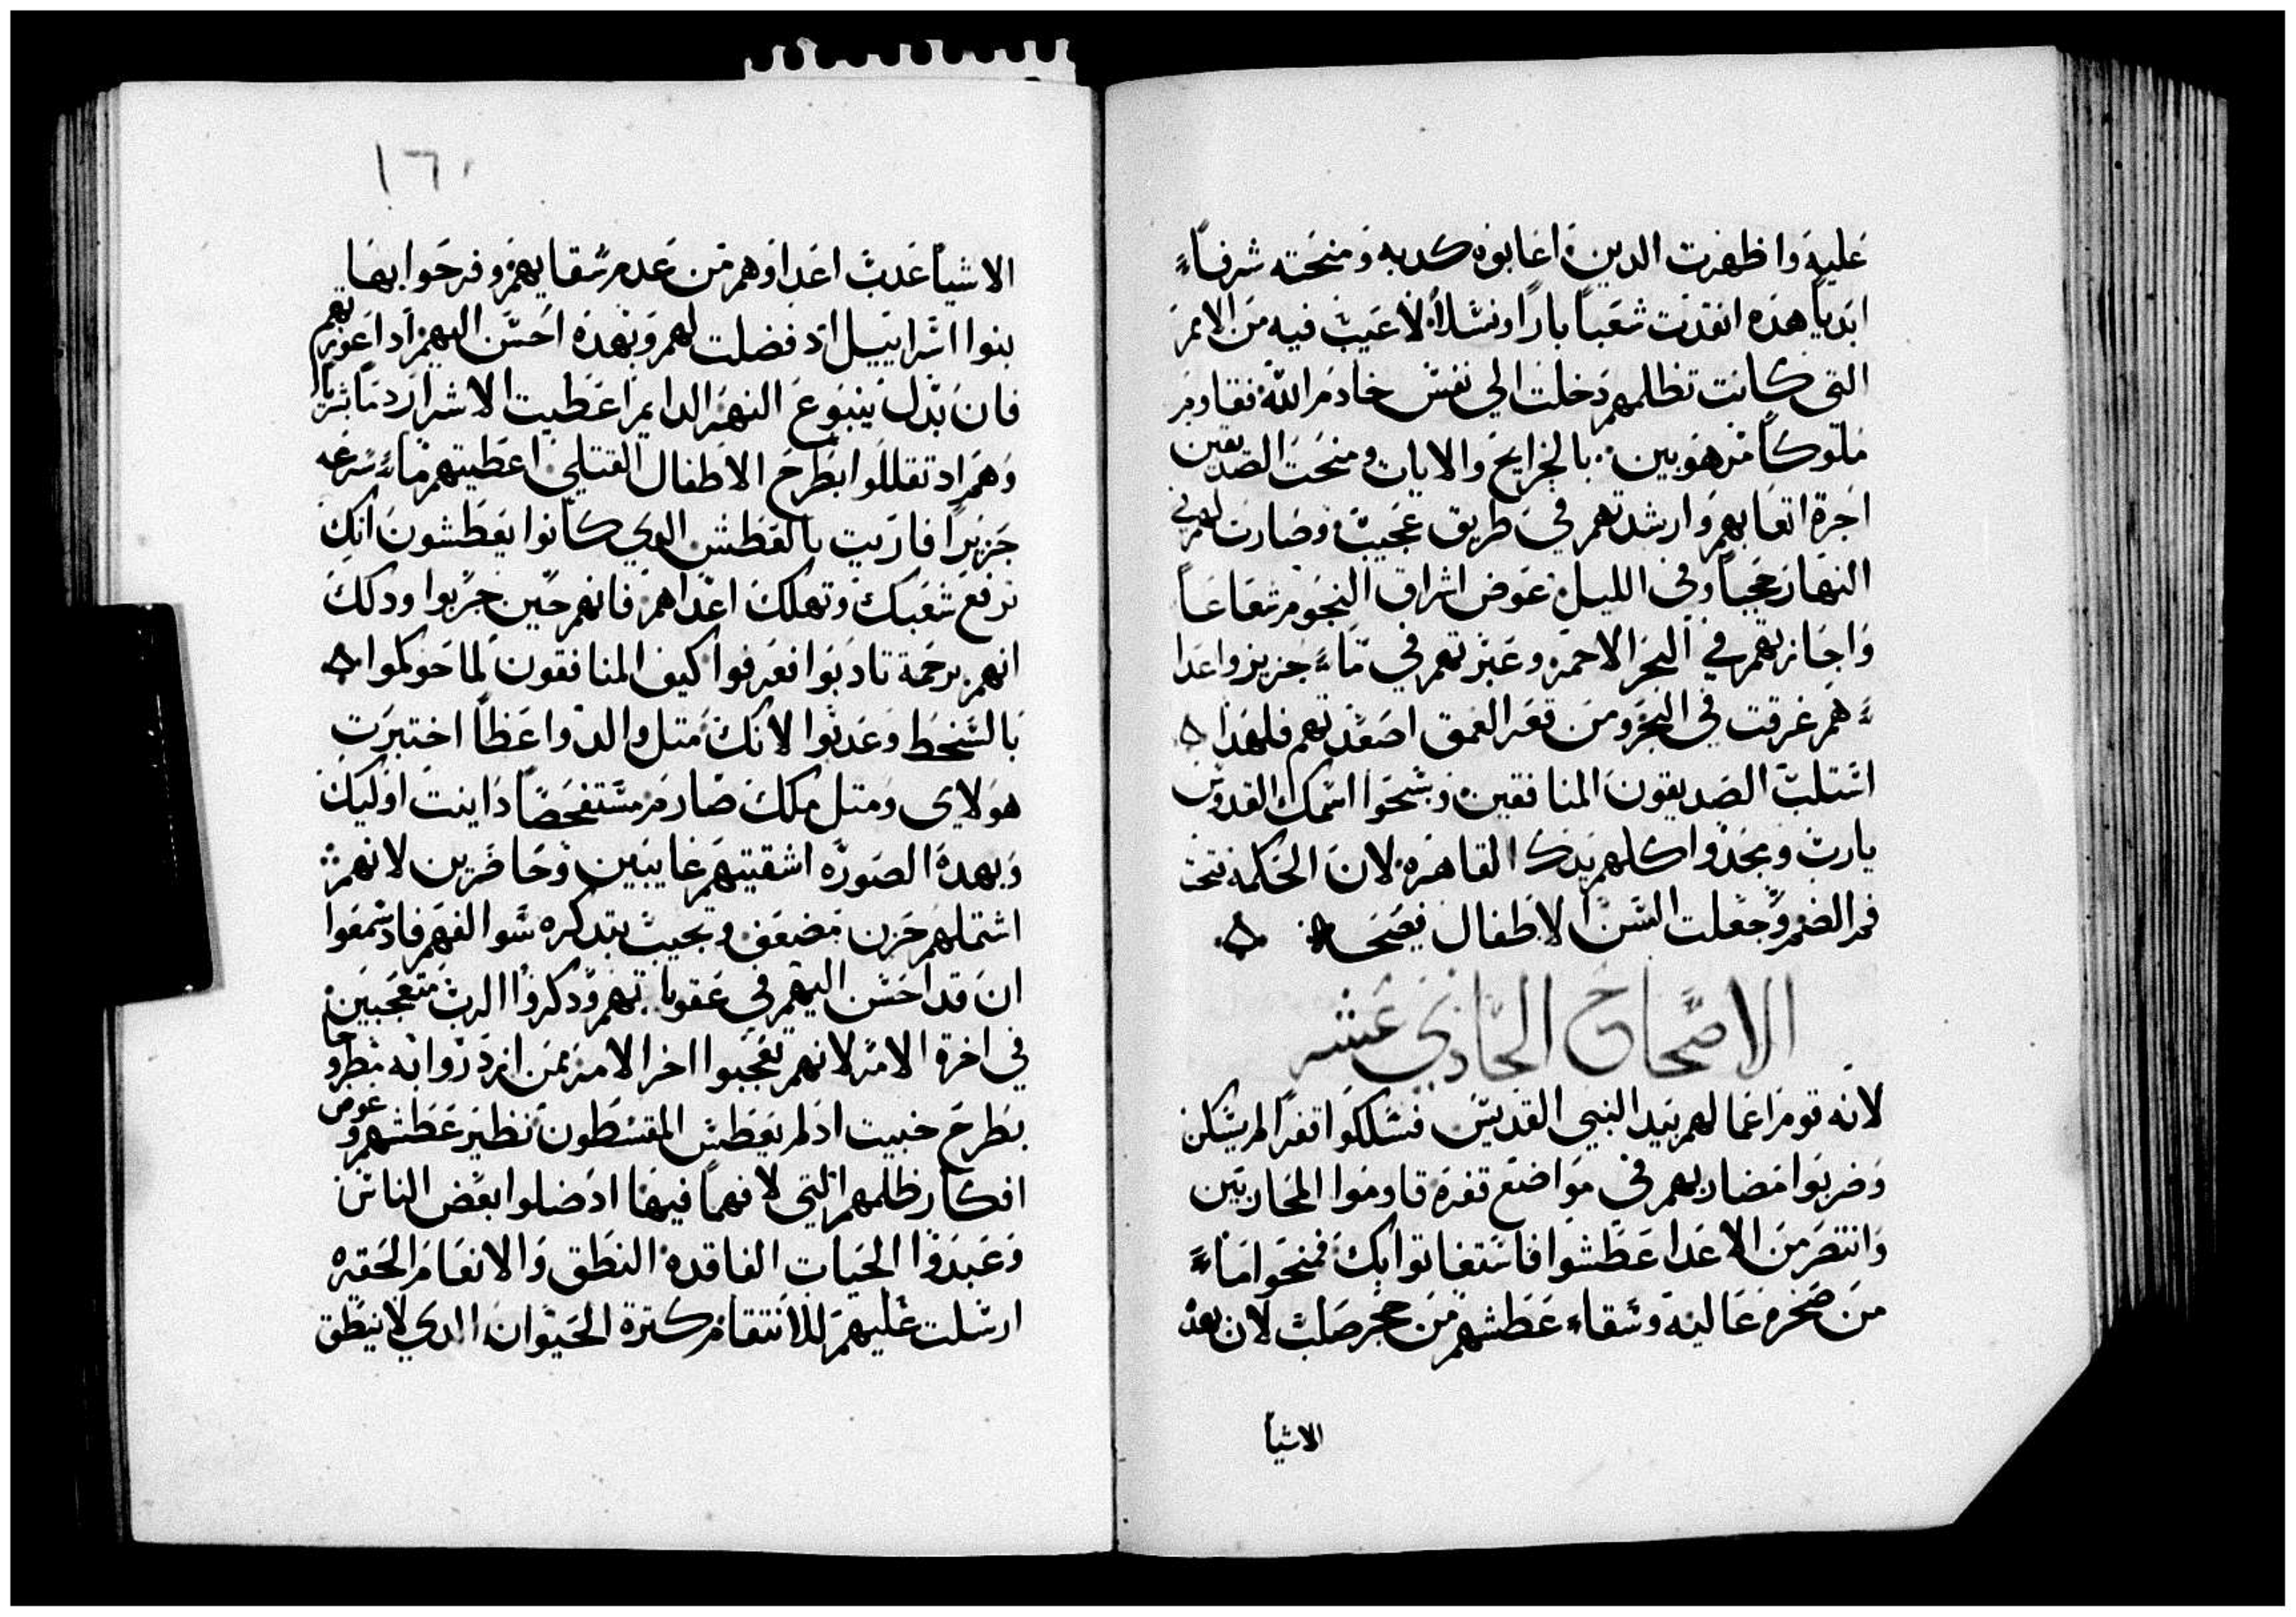 عليه واظهرت الدين اعابوه كدبه ومنحته شرفاً
ابدياً هذه انقدت شعباً باراً ونسلاً لا عيب فيه من الامم
التي كانت تظلمهم دخلت الي نفس خادم الله فقاوم
ملوكاً مرهوبين بالجرايح والايات ومنحت الصديقين
اجرة اتعابهم وارشدتهم في طريق عجيب وصارت لهم في
النهار حجباً وفي الليل عوض اشراق النجوم شعاعاً
واجازتهم في البحر الاحمر وعبرتهم في ماء جزيز واعدا
ءهم غرقت في البحر ومن قعر العمق اصعدتهم فلهدا
استلب الصديقون المنافقين وسبحوا اسمك القدوس
يارب ومجدوا كلهم يدك القاهرة لان الحكمة فتحت
فم الصم وجعلت السن الاطفال فصحا
الاصحاح الحادي عشر
لانه قوم اعمالهم بيد النبي القديس فسلكوا قفراً لم يسكن
وضربوا مضاربهم في مواضع قفره قاوموا المحاربين
وانتصر من الاعدا عطشوا فاستغاتوا بك فمنحوا ماء
من صخره عاليه وشفاء عطشهم من حجر صلب لان بهده
الاشيا
١٦٠
الاشيا عدب اعداوهم من عدم سقايهم وفرحوا بها
بنوا اسراييل اد فضلت لهم وبهده احسن اليهم اد اعوزتهم
فان بدل ينبوع النهر الدايم اعطيت الاشرار دماً بشرياً
وهم اد تقللوا بطرح الاطفال القتلي اعطيتهم ماء سرعه
جزيراً فاريت بالعطش الدي كانوا يعطشون انك
ترفع شعبك وتهلك اعداهم فانهم حين جربوا ودلك
انهم برحمة تادبوا فعرفوا كيف المنافقون لما حوكموا
بالسخط وعدبوا لانك متل والد واعظاً اختبرت
هولاي ومتل ملك صارم مستفحصاً داينت اوليك
وبهدة الصورة اشقيتهم غايبين وحاضرين لانهم
اشتملهم حزن مضعف ونحيب بتدكره سوالفهم فاد سمعوا
ان قد احسن اليهم في عقوباتهم ودكروا الرب متعجبين
في اخرة الامر لانهم تعجبوا اخر الامر ممن ازدروا به مطروحاً
بطرح خبيت اد لم يعطش المقسطون نظير عطشهم وعوض
افكار ظلمهم التي لا فهماً فيها اد ضلوا بعض الناس
وعبدوا الحيات الفاقدة النطق والانعام الحقيره
ارسلت عليهم للانتقام كترة الحيوان الدي لا ينطق